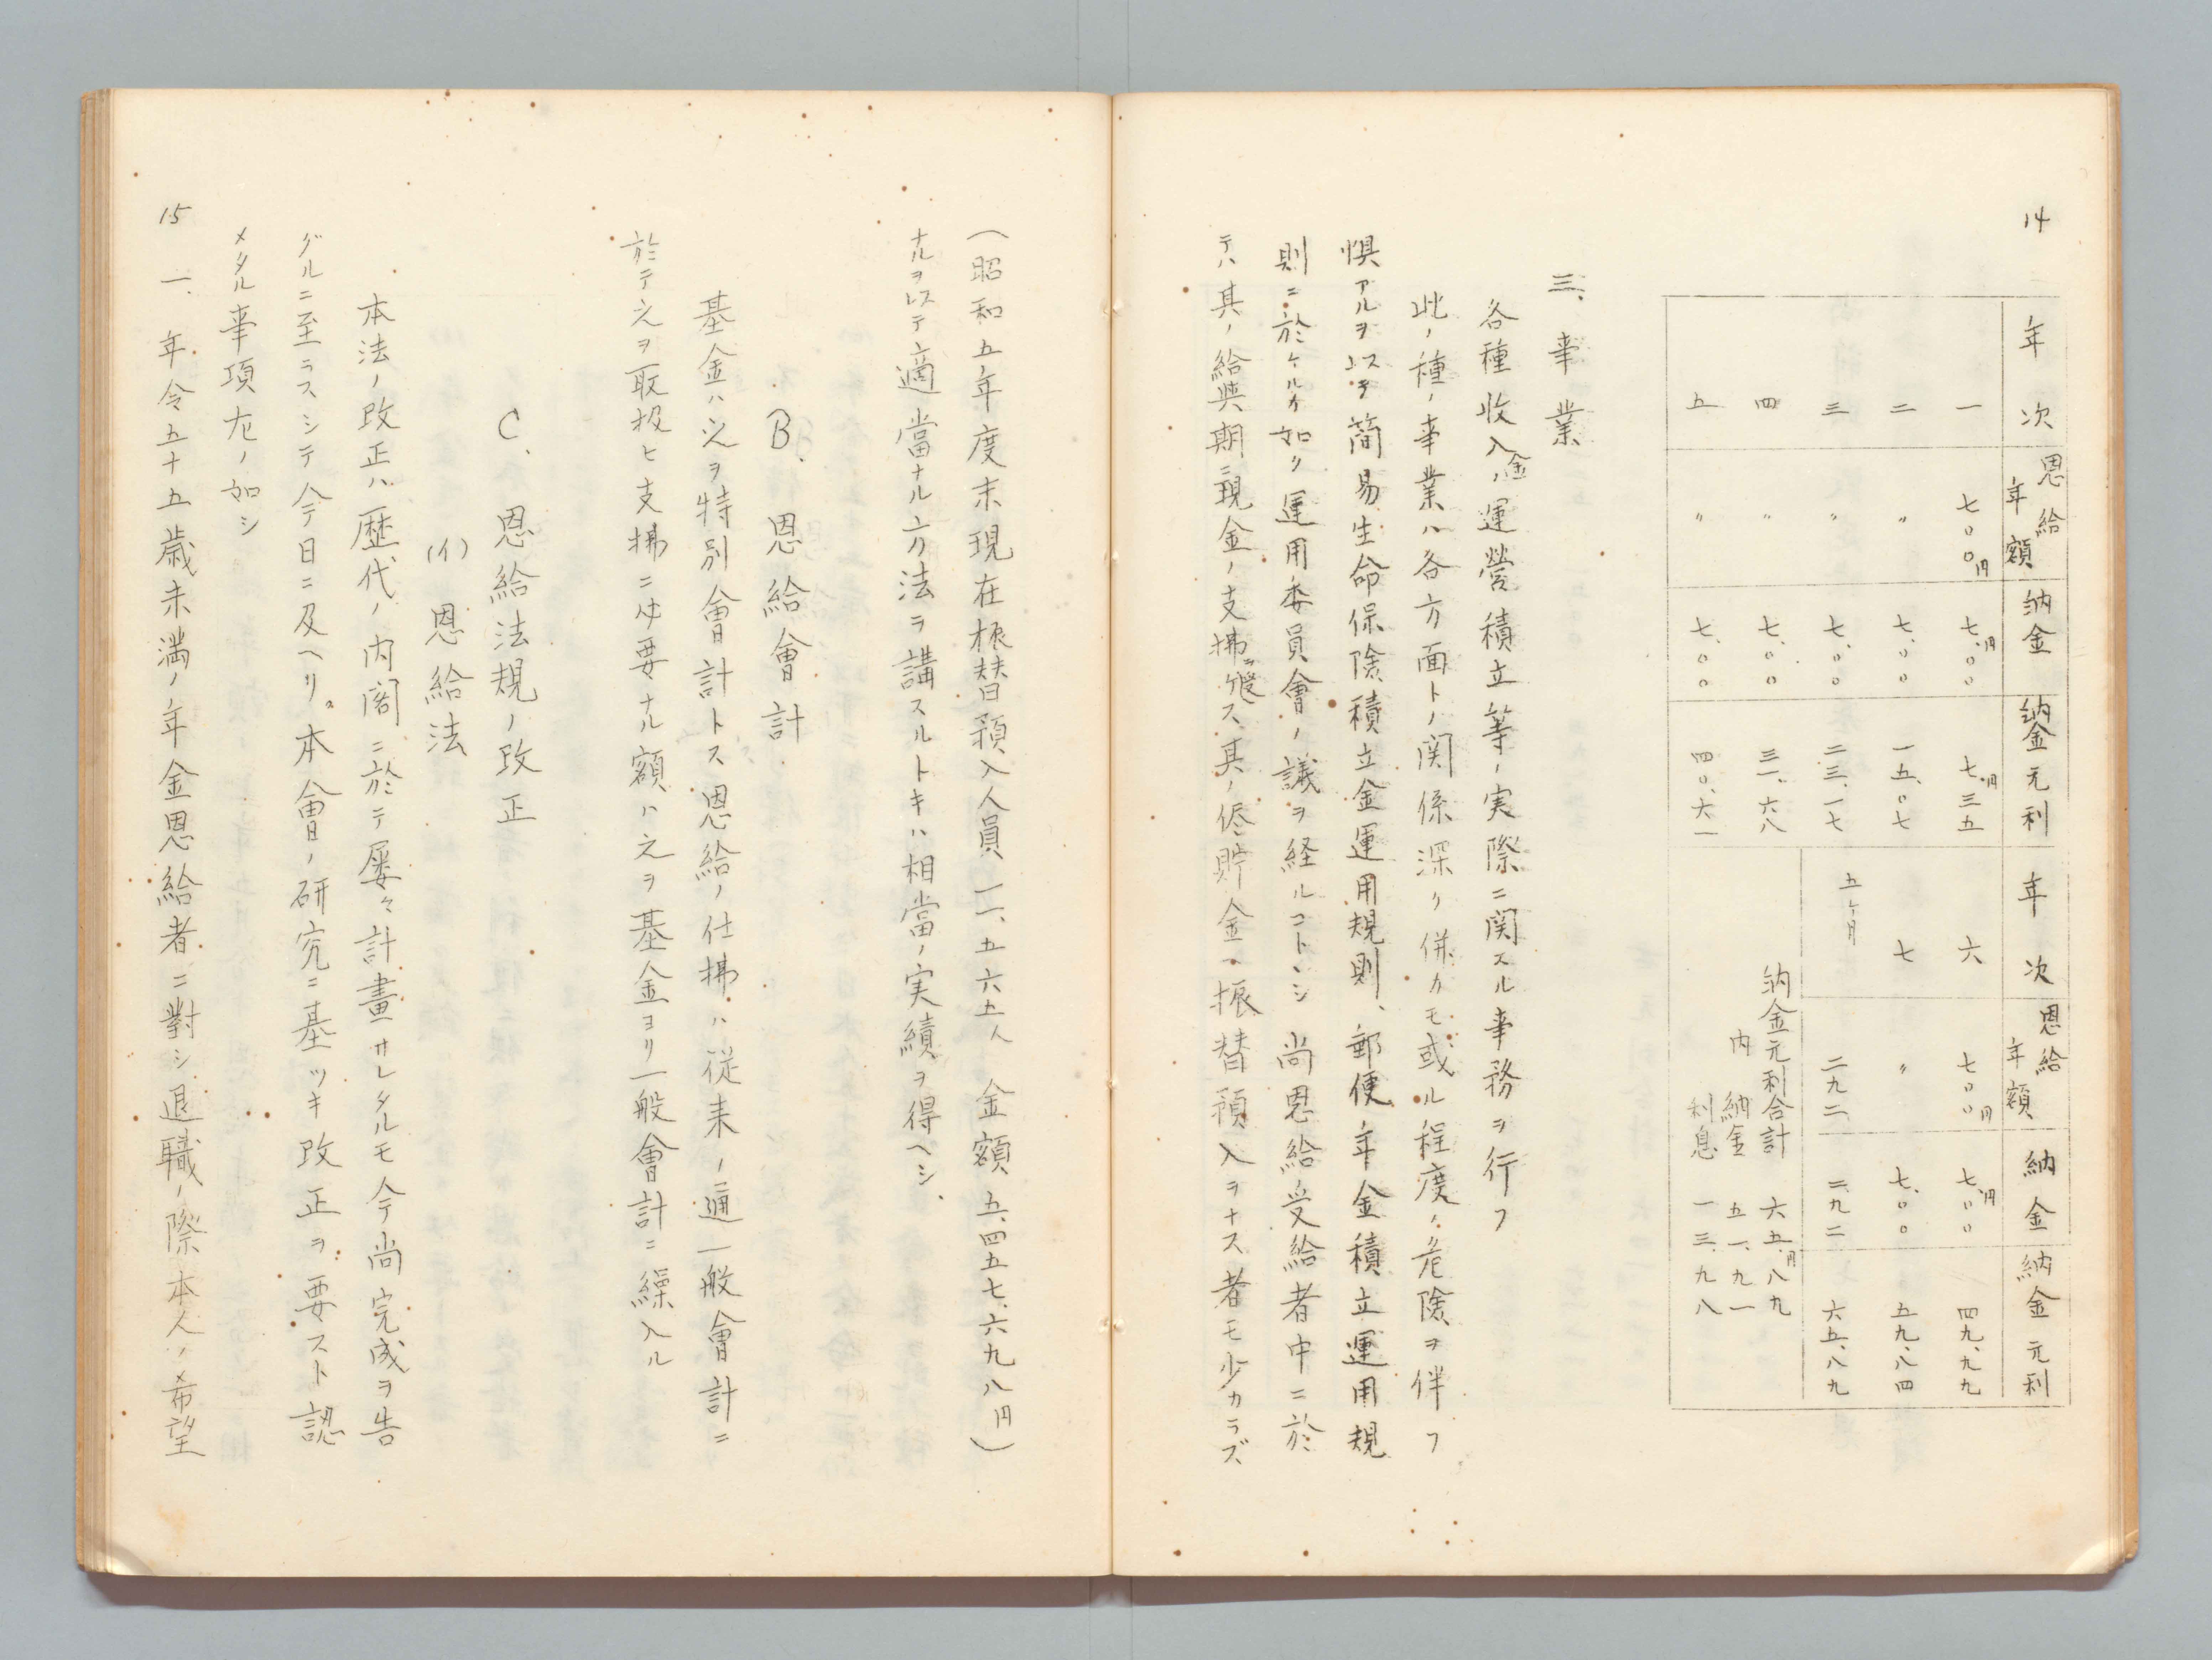 14
年次 恩給年額 納金 納金元利 年次 恩給年額 納金 納金元利
一 七〇〇円 七.円〇〇 七.円三五 六 七〇〇円 七.円〇〇 四九.九九
二 〃 七.〇〇 一五.〇七 七 〃 七.〇〇 五九.八四
三 〃 七.〇〇 二三.一七 五ヶ月 二九二 二.九二 六五.八九
四 〃 七.〇〇 三一.六八 納金元利合計 六五.円八九
内 納金 五一.九一
五 〃 七.〇〇 四〇.六一 利息 一三.九八
三、事業
各種収入金ノ運營積立等ノ実際ニ関スル事務ヲ行フ
此ノ種ノ事業ハ各方面トノ関係深ク併カモ或ル程度ノ危険ヲ伴フ
惧アルヲ以テ簡易生命保険積立金運用規則、郵便年金積立運用規
則ニ於ケルカ如ク運用委員會ノ議ヲ経ルコトヽシ尚恩給受給者中ニ於
テハ其ノ給與期ニ現金ノ支拂ヲ受ス其ノ侭貯金ヘ振替預入ヲナス者モ少カラズ
(昭和五年度末現在振替預入人員一一、五六五人 金額五、四五七、六九八円)
ナルヲ以テ適當ナル方法ヲ講スルトキハ相當ノ実績ヲ得ヘシ、
B、恩給會計
基金ハ之ヲ特別會計トス恩給ノ仕拂ハ従来ノ通一般會計ニ
於テ之ヲ取扱ヒ支拂ニ必要ナル額ハ之ヲ基金ヨリ一般會計ニ繰入ル
C、恩給法規ノ改正
(イ) 恩給法
本法ノ改正ハ歴代ノ内閣ニ於テ屡々計畫サレタルモ今尚完成ヲ告
グルニ至ラスシテ今日ニ及ヘリ。本會ノ研究ニ基ツキ改正ヲ要スト認
メタル事項左ノ如シ
一、年令五十五歳未満ノ年金恩給者ニ對シ退職ノ際本人ノ希望
15